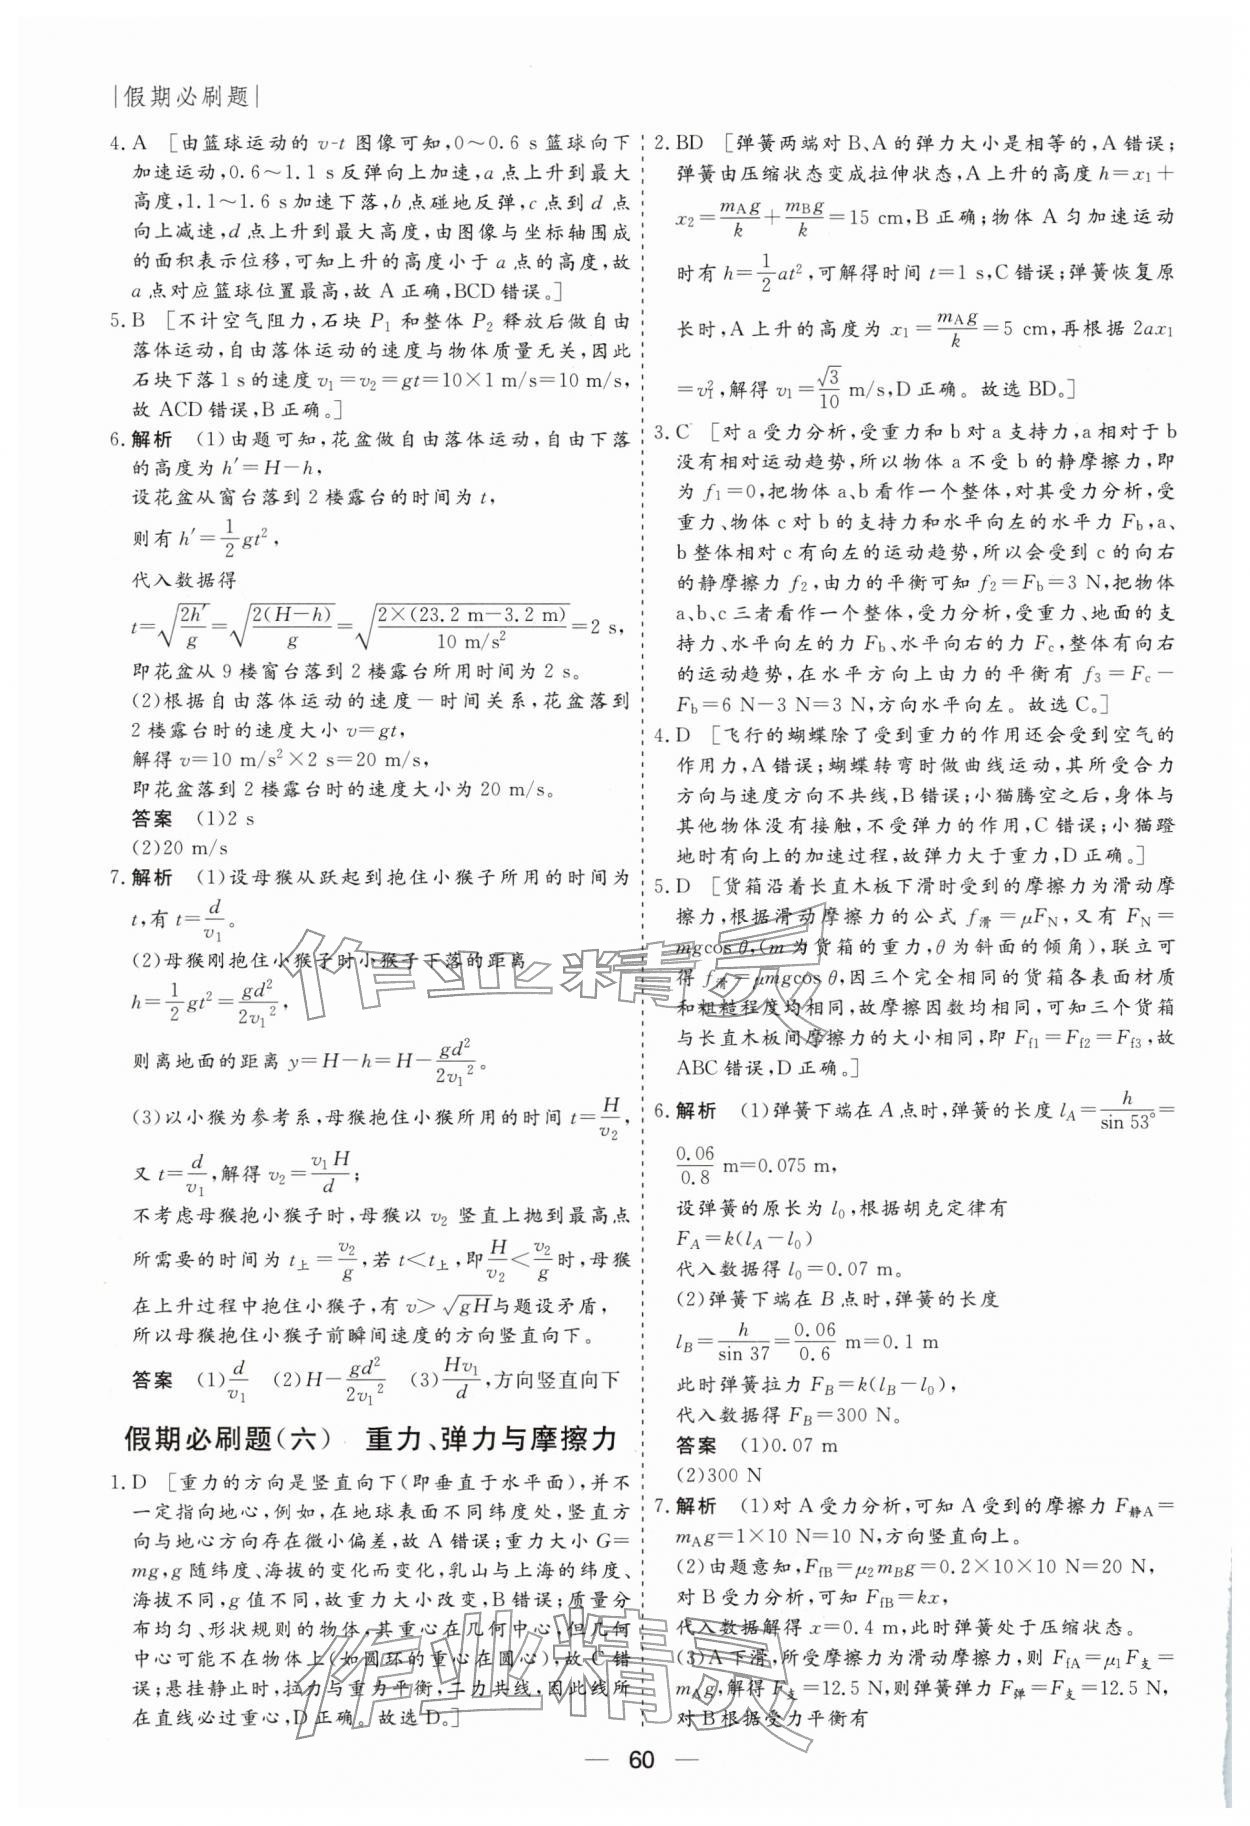 |假期必刷题|
4. A [由篮球运动的 v-t 图像可知,0～0.6 s 篮球向下
加速运动,0.6～1.1 s 反弹向上加速,a 点上升到最大
高度,1.1～1.6 s 加速下落,b 点碰地反弹,c 点到 d 点
向上减速,d 点上升到最大高度,由图像与坐标轴围成
的面积表示位移,可知上升的高度小于 a 点的高度,故
a 点对应篮球位置最高,故 A 正确,BCD 错误。]
5. B [不计空气阻力,石块 P₁ 和整体 P₂ 释放后做自由
落体运动,自由落体运动的速度与物体质量无关,因此
石块下落 1 s 的速度 v₁=v₂=gt=10×1 m/s=10 m/s,
故 ACD 错误,B 正确。]
6. 解析 (1)由题可知,花盆做自由落体运动,自由下落
的高度为 h′=H-h,
设花盆从窗台落到 2 楼露台的时间为 t,
则有 h′=1/2 gt²,
代入数据得
t=√(2h′/g)=√(2(H-h)/g)=√(2×(23.2 m-3.2 m)/10 m/s²)=2 s,
即花盆从 9 楼窗台落到 2 楼露台所用时间为 2 s。
(2)根据自由落体运动的速度-时间关系,花盆落到
2 楼露台时的速度大小 v=gt,
解得 v=10 m/s²×2 s=20 m/s,
即花盆落到 2 楼露台时的速度大小为 20 m/s。
答案 (1)2 s
(2)20 m/s
7. 解析 (1)设母猴从跃起到抱住小猴子所用的时间为
t,有 t=d/v₁。
(2)母猴刚抱住小猴子时小猴子下落的距离
h=1/2 gt²=gd²/2v₁²,
则离地面的距离 y=H-h=H-gd²/2v₁²。
(3)以小猴为参考系,母猴抱住小猴所用的时间 t=H/v₂,
又 t=d/v₁,解得 v₂=v₁H/d;
不考虑母猴抱小猴子时,母猴以 v₂ 竖直上抛到最高点
所需要的时间为 t上=v₂/g,若 t<t上,即 H/v₂<v₂/g 时,母猴
在上升过程中抱住小猴子,有 v>√gH 与题设矛盾,
所以母猴抱住小猴子前瞬间速度的方向竖直向下。
答案 (1)d/v₁ (2)H-gd²/2v₁² (3)Hv₁/d,方向竖直向下
假期必刷题(六) 重力、弹力与摩擦力
1. D [重力的方向是竖直向下(即垂直于水平面),并不
一定指向地心,例如,在地球表面不同纬度处,竖直方
向与地心方向存在微小偏差,故 A 错误;重力大小 G=
mg,g 随纬度、海拔的变化而变化,乳山与上海的纬度、
海拔不同,g 值不同,故重力大小改变,B 错误;质量分
布均匀、形状规则的物体,其重心在几何中心,但几何
中心可能不在物体上(如圆环的重心在圆心),故 C 错
误;悬挂静止时,拉力与重力平衡,二力共线,因此线所
在直线必过重心,D 正确。故选 D。]
2. BD [弹簧两端对 B、A 的弹力大小是相等的,A 错误;
弹簧由压缩状态变成拉伸状态,A 上升的高度 h=x₁+
x₂=mAg/k+mBg/k=15 cm,B 正确;物体 A 匀加速运动
时有 h=1/2 at²,可解得时间 t=1 s,C 错误;弹簧恢复原
长时,A 上升的高度为 x₁=mAg/k=5 cm,再根据 2ax₁
=v₁²,解得 v₁=√3/10 m/s,D 正确。故选 BD。]
3. C [对 a 受力分析,受重力和 b 对 a 支持力,a 相对于 b
没有相对运动趋势,所以物体 a 不受 b 的静摩擦力,即
为 f₁=0,把物体 a、b 看作一个整体,对其受力分析,受
重力、物体 c 对 b 的支持力和水平向左的水平力 Fb,a、
b 整体相对 c 有向左的运动趋势,所以会受到 c 的向右
的静摩擦力 f₂,由力的平衡可知 f₂=Fb=3 N,把物体
a、b、c 三者看作一个整体,受力分析,受重力、地面的支
持力、水平向左的力 Fb、水平向右的力 Fc,整体有向右
的运动趋势,在水平方向上由力的平衡有 f₃=Fc-
Fb=6 N-3 N=3 N,方向水平向左。故选 C。]
4. D [飞行的蝴蝶除了受到重力的作用还会受到空气的
作用力,A 错误;蝴蝶转弯时做曲线运动,其所受合力
方向与速度方向不共线,B 错误;小猫腾空之后,身体与
其他物体没有接触,不受弹力的作用,C 错误;小猫蹬
地时有向上的加速过程,故弹力大于重力,D 正确。]
5. D [货箱沿着长直木板下滑时受到的摩擦力为滑动摩
擦力,根据滑动摩擦力的公式 f滑=μFN,又有 FN=
mgcos θ,(m 为货箱的重力,θ 为斜面的倾角),联立可
得 f滑=μmgcos θ,因三个完全相同的货箱各表面材质
和粗糙程度均相同,故摩擦因数均相同,可知三个货箱
与长直木板间摩擦力的大小相同,即 Ff1=Ff2=Ff3,故
ABC 错误,D 正确。]
6. 解析 (1)弹簧下端在 A 点时,弹簧的长度 lA=h/sin 53°=
0.06/0.8 m=0.075 m,
设弹簧的原长为 l₀,根据胡克定律有
FA=k(lA-l₀)
代入数据得 l₀=0.07 m。
(2)弹簧下端在 B 点时,弹簧的长度
lB=h/sin 37=0.06/0.6 m=0.1 m
此时弹簧拉力 FB=k(lB-l₀),
代入数据得 FB=300 N。
答案 (1)0.07 m
(2)300 N
7. 解析 (1)对 A 受力分析,可知 A 受到的摩擦力 F静A=
mAg=1×10 N=10 N,方向竖直向上。
(2)由题意知,FfB=μ₂mBg=0.2×10×10 N=20 N,
对 B 受力分析,可知 FfB=kx,
代入数据解得 x=0.4 m,此时弹簧处于压缩状态。
(3)A 下滑,所受摩擦力为滑动摩擦力,则 FfA=μ₁F支=
mAg,解得 F支=12.5 N,则弹簧弹力 F弹=F支=12.5 N,
对 B 根据受力平衡有
— 60 —
作业精灵
作业精灵